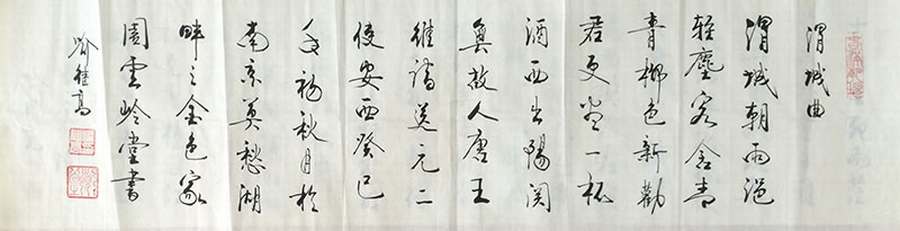 渭城曲
渭城朝雨浥
輕塵客舍青
青柳色新勸
君更盡一杯
酒西出陽関
無故人唐王
維詩送元二
使安西癸巳
年初秋月於
南京莫愁湖
畔之金色家
園雲岭堂書
喻継高